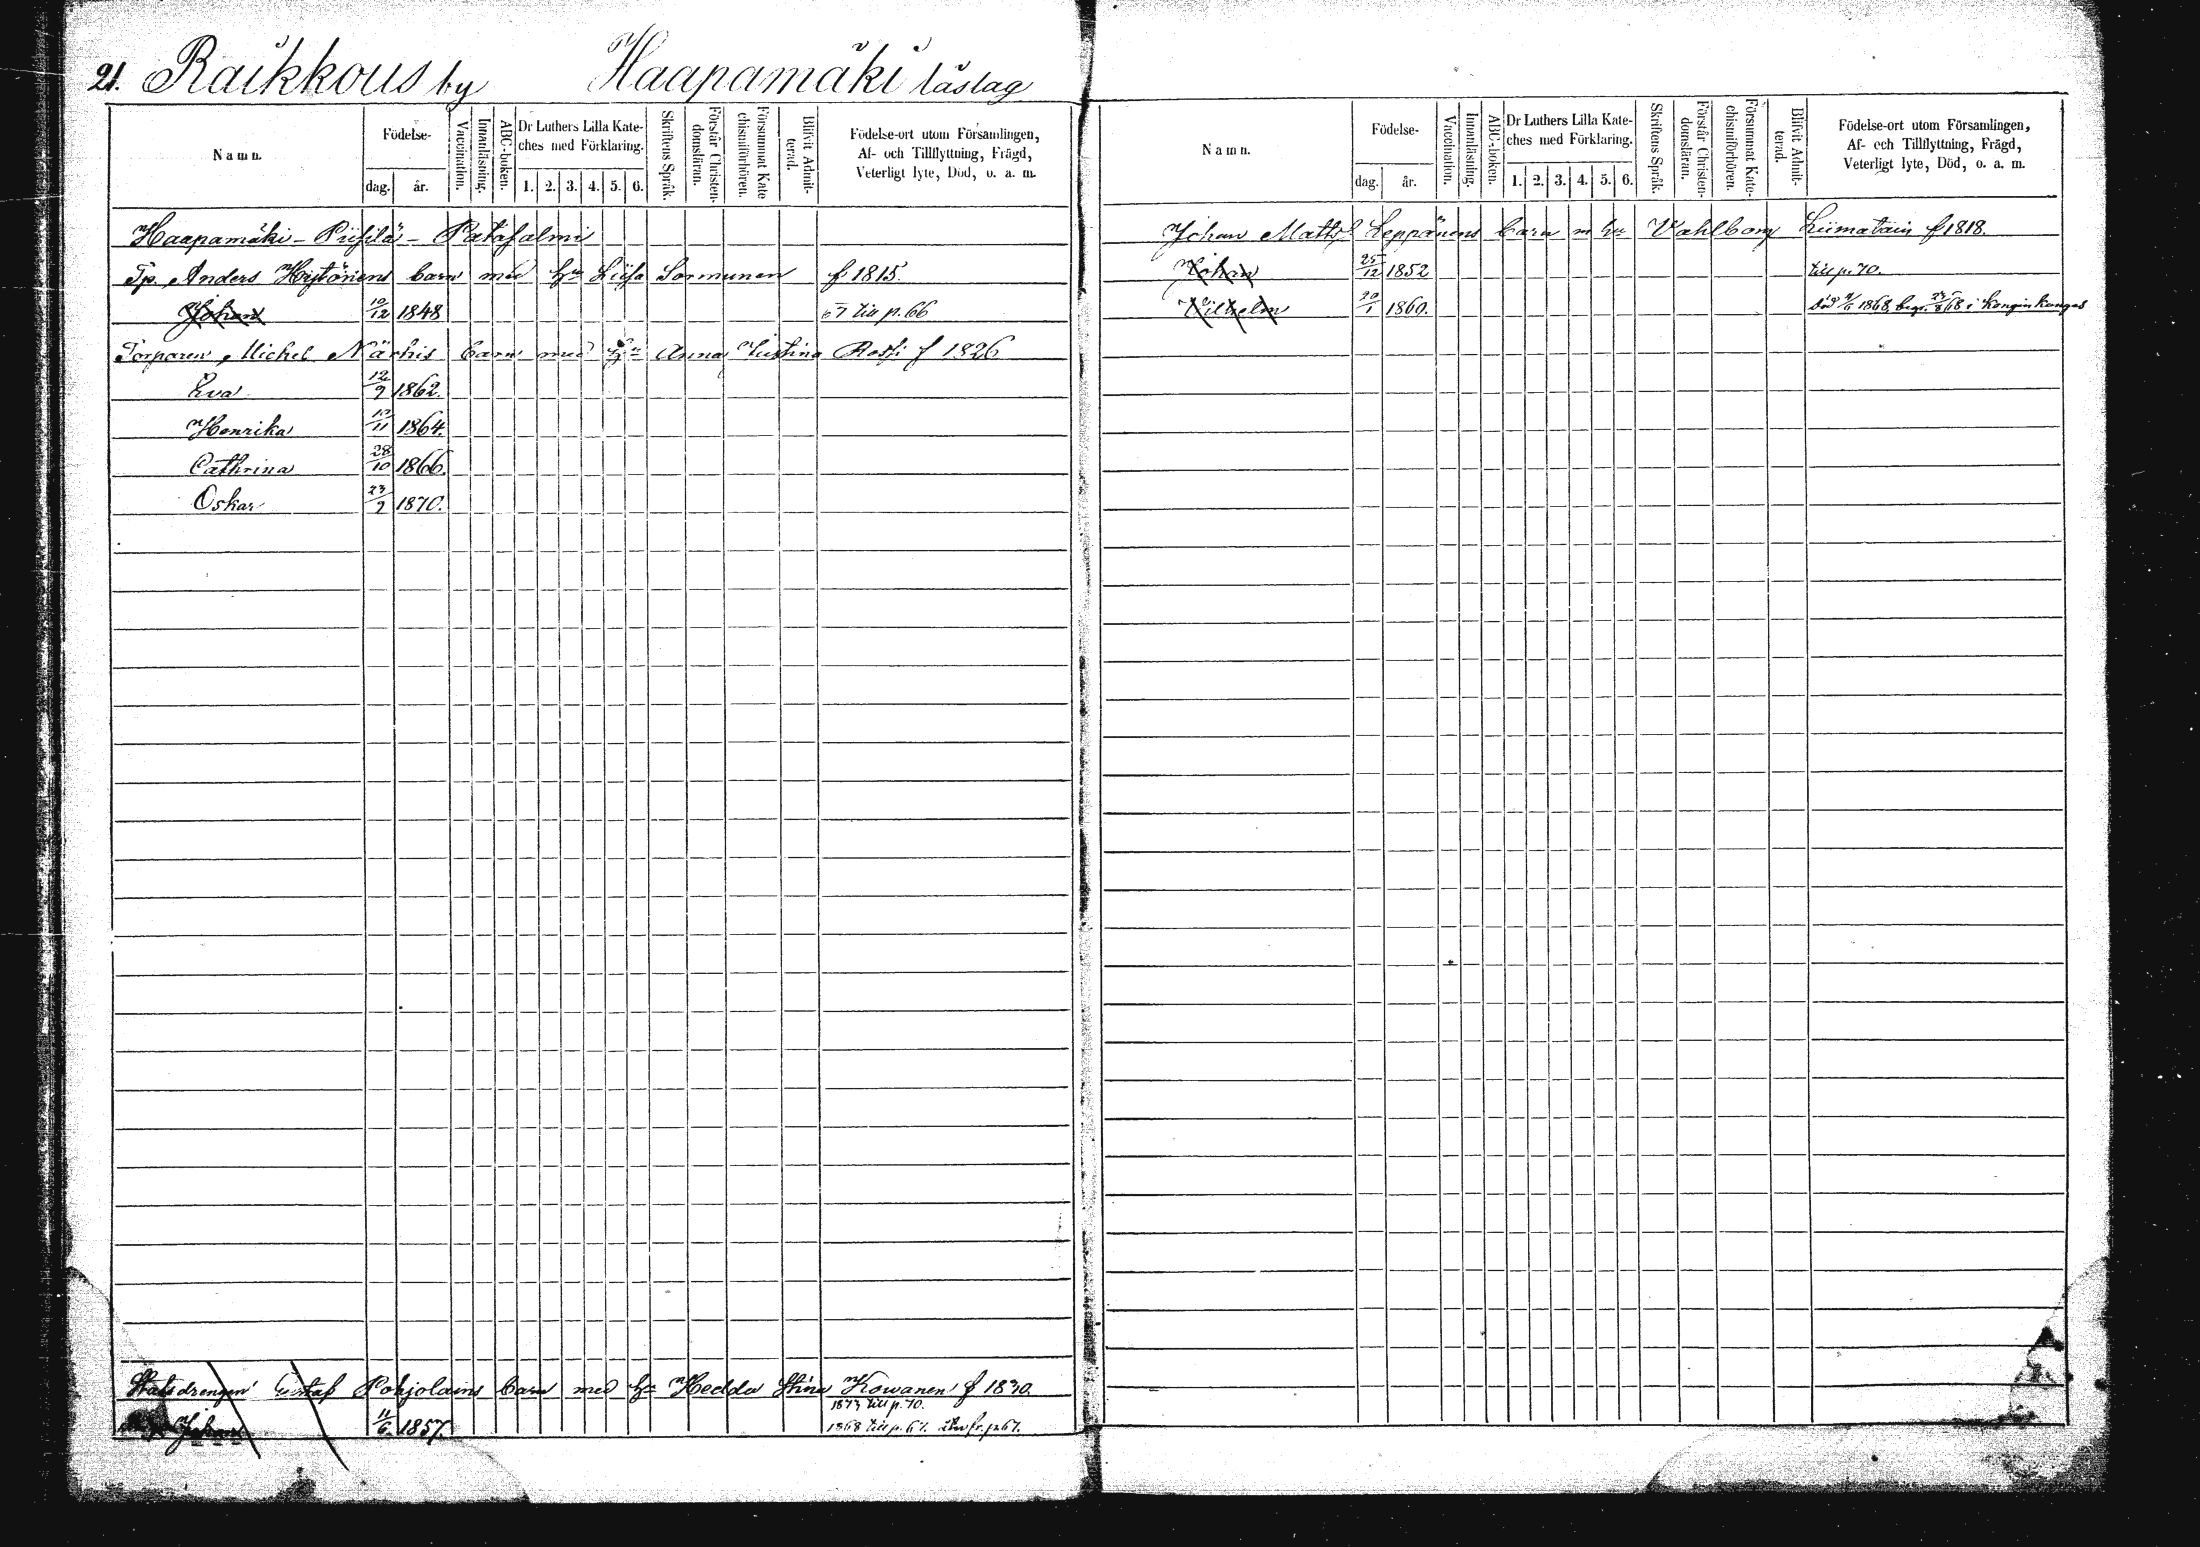 21. Raikkous by Haapamäki läslag
Namn.
Födelse-
dag. år.
Vaccination.
Innanläsning.
ABC-boken.
Dr Luthers Lilla Kate-
ches med Förklaring.
1. 2. 3. 4. 5. 6.
Skriftens Språk.
Förstår Christen-
domsläran.
Försummat Kate
chismiförhören.
Blifvit Admit-
terad.
Födelse-ort utom Församlingen,
Af- och Tillflyttning, Frägd,
Veterligt lyte, Död, o. a. m.
Haapamäki - Piipilä - Patasalmi
Tp. Anders barn med hu Liisa Sormunen f 1815.
Johan 10/12 1848 till p. 66
Torparen Michel Närhis barn med hu Anna Justina Rossi f 1826
Eva 12/9 1862.
Henrika 17/11 1864.
Cathrina 28/10 1866.
Oskar 23/9 1870.
Gustaf Pohjolains barn med hu Hedda Stina Kowanen f 1830.
1873 till p. 70.
Johan 11/6 1857. 1868 till p. 67. fr. p 67.
Namn.
Födelse-
dag. år.
Vaccination.
Innanläsning.
ABC-boken.
Dr Luthers Lilla Kate-
ches med Förklaring.
1. 2. 3. 4. 5. 6.
Skriftens Språk.
Förstår Christen-
domsläran.
Försummat Kate-
chismiförhören.
Blifvit Admit-
terad.
Födelse-ort utom Församlingen,
Af- och Tillflyttning, Frägd,
Veterligt lyte, Död, o. a. m.
Johan Matts Leppänens barn m hu Vahlborg Liimatain f 1818.
Johan 25/12 1852 till p. 70.
Wilhelm 20/1 1860. Död 1868, begr. i Kanginkangas